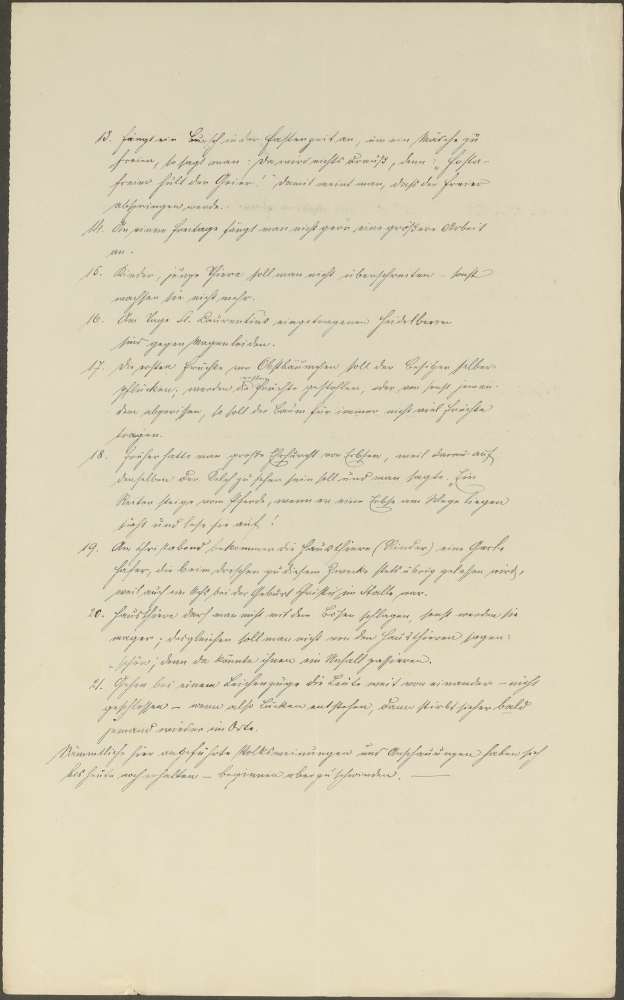 13. Fängt ein Bursch in der Fastenzeit an, um ein Mädchen zu
freien, so sagt man: Da wird nichts draus, denn: „Fasta-
freier hült der Geier!" Damit meint man, daß der Freier
abspringen werde.
14. An einem Freitage fängt man nicht gern eine größere Arbeit
an.
15. Kinder, junge Thiere soll man nicht überschreiten – sonst
wachsen sie nicht mehr.
16. Am Tage St. Laurentius eingetragene Heidelbeeren
sind gegen Magenleiden.
17. Die ersten Früchte von Obstbäumchen soll der Besitzer selber
pflücken; werden die ersten Früchte gestohlen, oder von sonst jeman-
dem abgerissen, so soll der Baum für immer nicht viel Früchte
tragen.
18. Früher hatte man große Ehrfurcht vor Erbsen, weil darauf auf
denselben der Kelch zu sehen sein soll und man sagte: „Ein
Reiter steige vom Pferde, wenn er eine Erbse am Wege liegen
sieht und lese sie auf!
19. Am Christabend bekommen die Hausthiere (Rinder) eine Garbe
Hafer, die beim Dreschen zu diesem Zwecke stets übrig gelassen wird,
weil auch ein Ochs bei der Geburt Christi im Stalle war.
20. Hausthiere darf man nicht mit dem Besen schlagen, sonst werden sie
mager; desgleichen soll man nicht von den Hausthieren sagen:
„schön", denn da könnte ihnen ein Unfall passieren.
21. Gehen bei einem Leichenzuge die Leute weit von einander – nicht
geschlossen – wenn also Lücken entstehen, dann stirbt sicher bald
jemand wieder im Orte.
Sämmtliche hier angeführte Volksmeinungen und Anschauungen haben sich
bis heute noch erhalten – beginnen aber zu schwinden. —